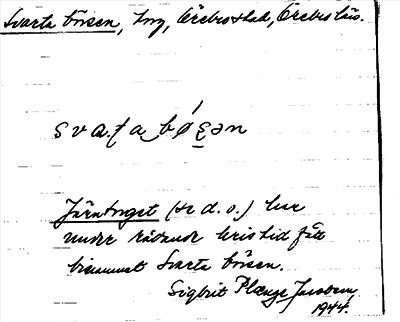 Svarta börsen, torg, Örebro stad, Örebro län.
svaʈa bǿʂən
Järntorget (se d. o.) har
under rådande kristid fått
binamnet Svarta börsen.
Sigbrit Plænge Jacobson,
1944.